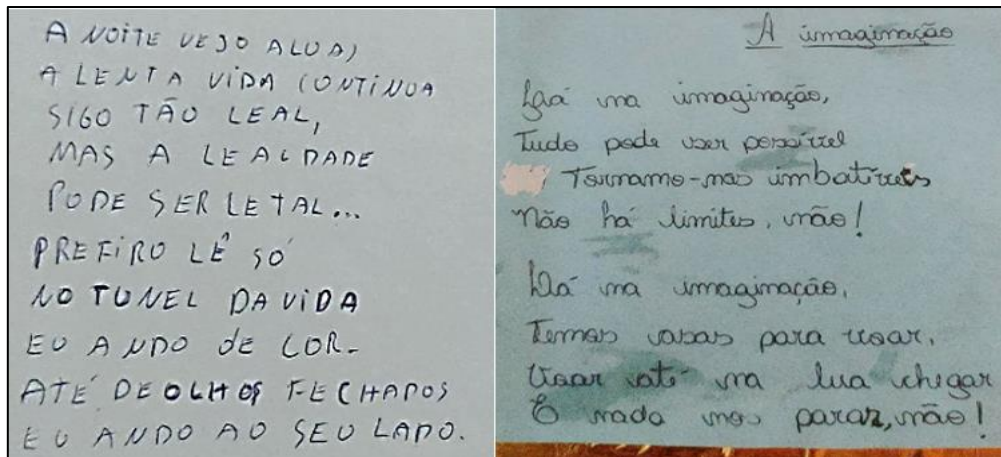 A NOITE VEJO A LUA,
A LENTA VIDA CONTINUA
SIGO TÃO LEAL,
MAS A LEALDADE
PODE SER LETAL...
PREFIRO LÊ SÓ
NO TUNEL DA VIDA
EU ANDO DE COR.
ATÉ DE OLHOS FECHADOS
EU ANDO AO SEU LADO.
A imaginação
Lá na imaginação,
Tudo pode ser possível
Tornamo-nos imbatíveis
Não há limites, não!
Lá na imaginação,
Temos asas para voar,
Voar até na lua chegar
E nada nos parar, não!